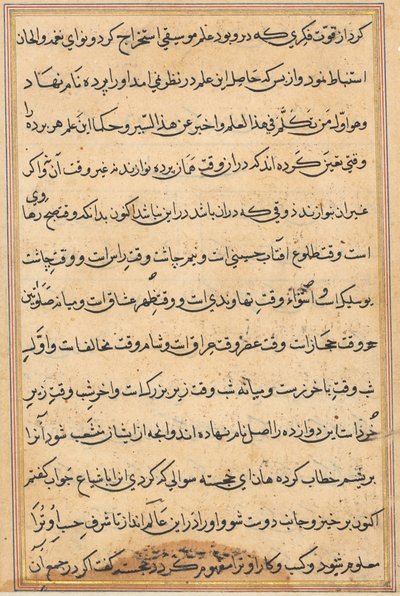 کرد از قوت فکری که در وبود علم موسیقی استخراج کرد و نوای نغمه والحان
استنباط نمود واز بس که حاصل این علم در نظر نمی امد اورا پرده نام نهاد
وهو اول من تکلم فی هذا العلم واخبر عن هذا السیر وحکما این علم هر پرده را
وقتی تعین کرده اند که در ان وقت همان پرده نوازند در غیر وقت آن اکر
غیر ان نوازند ذوقی که در ان باشد در این نباشد اکنون بدانکه وقت صبح رهاوی
است وقت طلوع افتاب حسینی است و نیم چاشت وقت راست و وقت چاشت
بوسلیک است و استواء وقت نهاوندی است و وقت ظهر عشاق است و میانه صلوتین
وقت حجاز است وقت عصر وقت عراق است و شام وقت مخالف است واول
شب وقت باخرزست و میانه شب وقت زیر بزرک است واخر شب وقت زیر
خُرد است این دوازده را اصل نام نهاده اند وانجه از ایشان منشعب شود آنرا
بریشم خطاب کرده هان ای خجسته سوالی که کردی انرا باشباع جواب کفتم
اکنون برخیز و جانب دوست شو و اورا در این عالم انداز تا شرف حسب او ترا
معلوم شود و کسب و کار او ترا مفهوم کردد خجسته کفت اکر در جمع آن